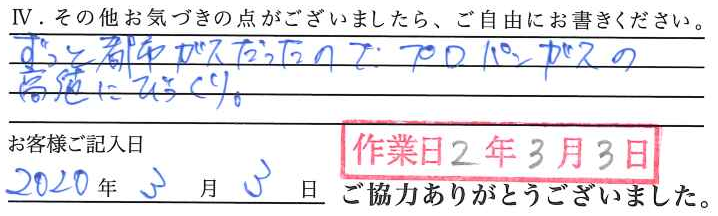 Ⅳ．その他お気づきの点がございましたら、ご自由にお書きください。
ずっと都市ガスだったので プロパンガスの
高値にびっくり。
お客様ご記入日
作業日2年3月3日
2020年 3 月 3 日 ご協力ありがとうございました。